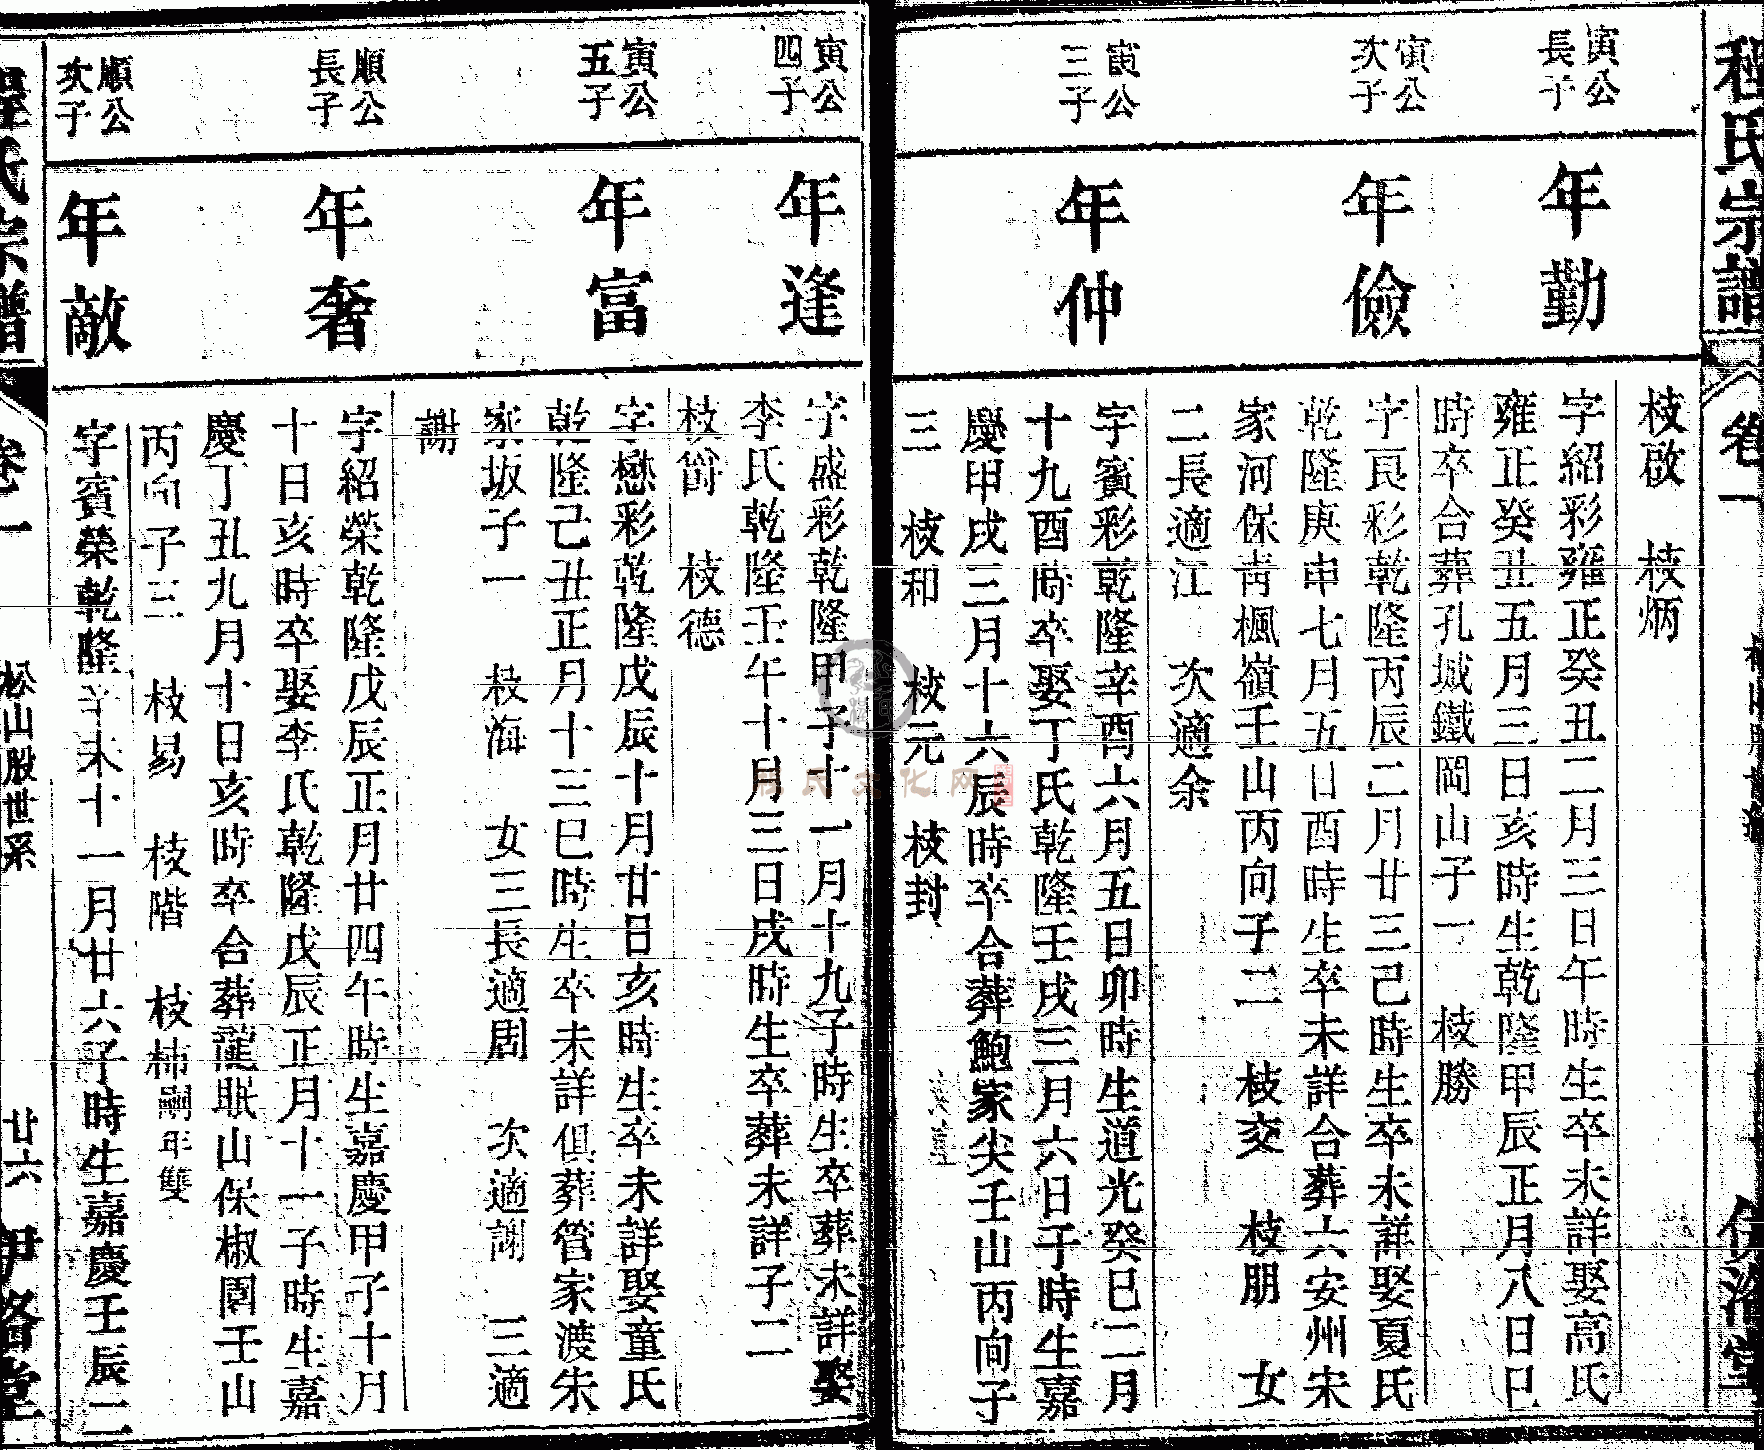 程氏宗譜
卷一
伊洛堂
枝啟 枝炳
寅公長子
年勤
字紹彩雍正癸丑二月三日午時生卒未詳娶高氏
雍正癸丑五月三日亥時生乾隆甲辰正月八日巳
時卒合葬孔城鐵岡山子一 枝勝
寅公次子
年儉
字良彩乾隆丙辰二月廿三己時生卒未詳娶夏氏
乾隆庚申七月五日酉時生卒未詳合葬六安州宋
家河保青楓嶺壬山丙向子二 枝交 枝朋 女
二長適江 次適余
寅公三子
年仲
字賓彩乾隆辛酉六月五日卯時生道光癸巳二月
十九酉時卒娶丁氏乾隆壬戌三月六日子時生嘉
慶甲戌三月十六辰時卒合葬鮑家尖壬山丙向子
三 枝和 枝元 枝封
寅公四子
年逢
字盛彩乾隆甲子十一月十九子時生卒葬未詳娶
李氏乾隆壬午十月三日戌時生卒葬未詳子二
枝 枝德
寅公五子
年富
字懋彩乾隆戊辰十月廿日亥時生卒未詳娶童氏
乾隆己丑正月十三巳時生卒未詳俱葬管家渡朱
家坂子一 枝海 女三長適周 次適謝 三適
謝
順公長子
年奢
字紹榮乾隆戊辰正月廿四午時生嘉慶甲子十月
十日亥時卒娶李氏乾隆戊辰正月十一子時生嘉
慶丁丑九月十日亥時卒合葬龍眠山保椒園壬山
丙向子三 枝易 枝階 枝柿嗣年雙
順公次子
年敵
字賓榮乾隆辛未十一月廿六子時生嘉慶壬辰二
程氏宗譜
卷一
松山股世系
廿六
伊洛堂